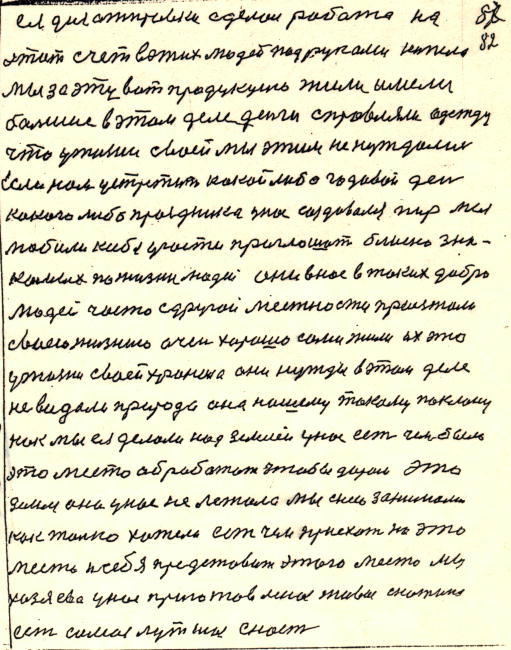 82
ея для активки сделал работа на
этот счет в ежих людей под руками имела
мы за эту вот продукцию жили имели
балшие в этом деле денги справляли одежду
что у жизни своей мы этим не нуждолися
Если нам устроить какой либо годовой ден
какого либо праздника у нас создовался пир мы
любили к себе у гости приглошат близко зна-
комых по жизни людей они в нас в таких добро
людей часто с другой местности приезжали
своею жизнию очен хорошо сами жили их это
у жизни своей хронила они нужды в этом деле
не видали природа она нашему такому поклону
как мы ея делали над землей у нас ест чем было
это место обработат чтобы даром эта
земля она у нас не лежала мы ею занималис
как толко хотели ест чем приехат на это
место и себя предствават этого место мы
хозяева у нас приготовлена живая скотина
ест самая лутшая снаст